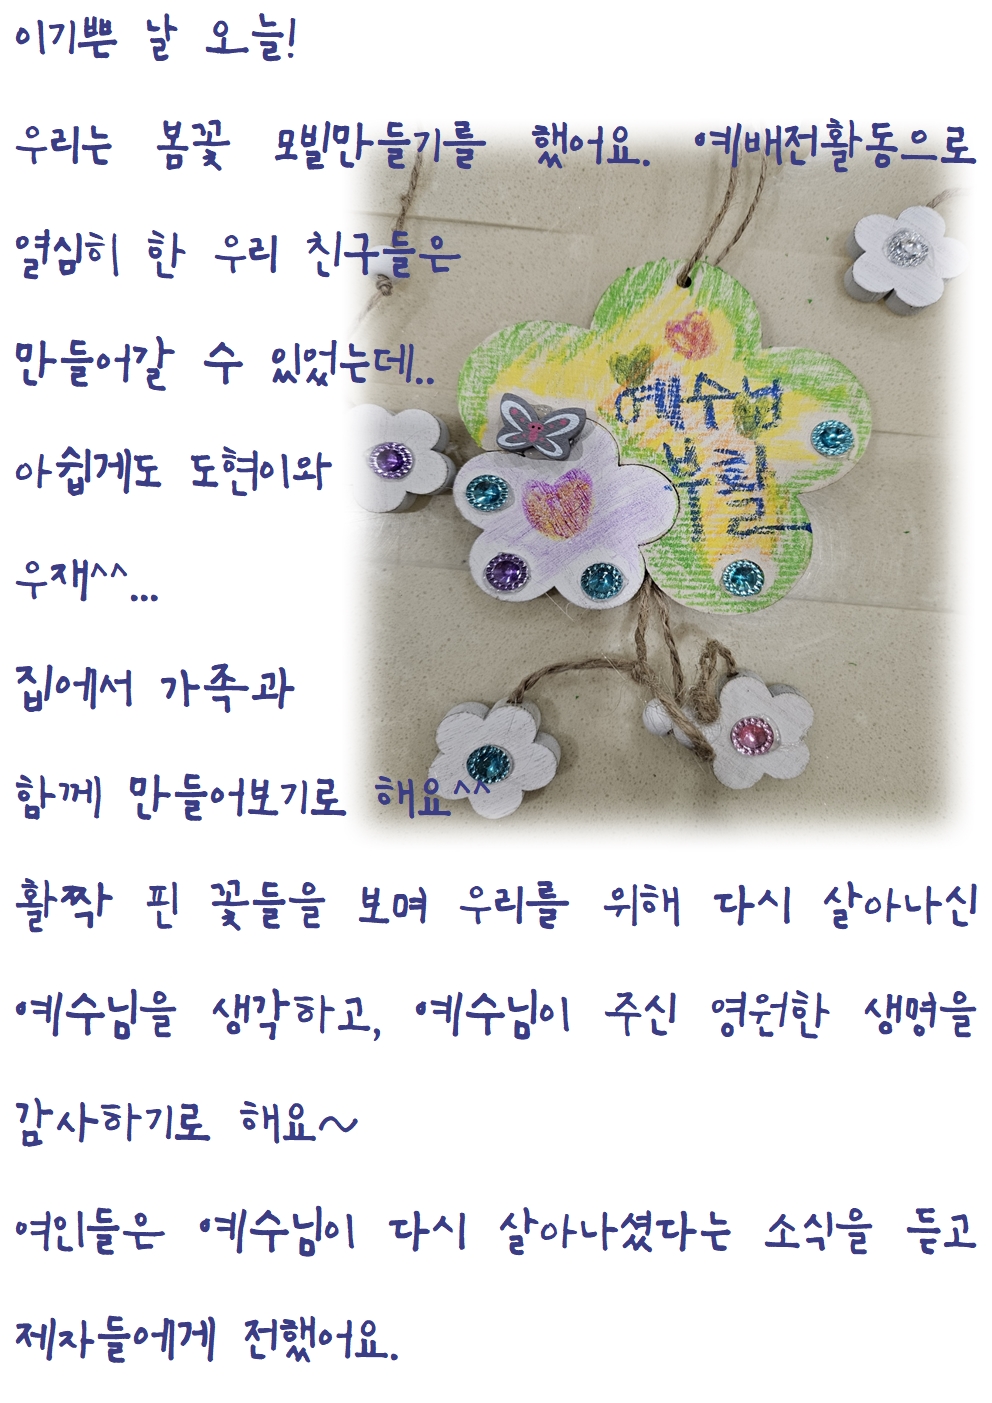 이기쁜 날 오늘!
우리는 봄꽃 모빌만들기를 했어요. 예배전활동으로
열심히 한 우리 친구들은
만들어갈 수 있었는데..
아쉽게도 도현이와
우재^^...
집에서 가족과
함께 만들어보기로 해요^^
활짝 핀 꽃들을 보며 우리를 위해 다시 살아나신
예수님을 생각하고, 예수님이 주신 영원한 생명을
감사하기로 해요~
여인들은 예수님이 다시 살아나셨다는 소식을 듣고
제자들에게 전했어요.
예수님
부활